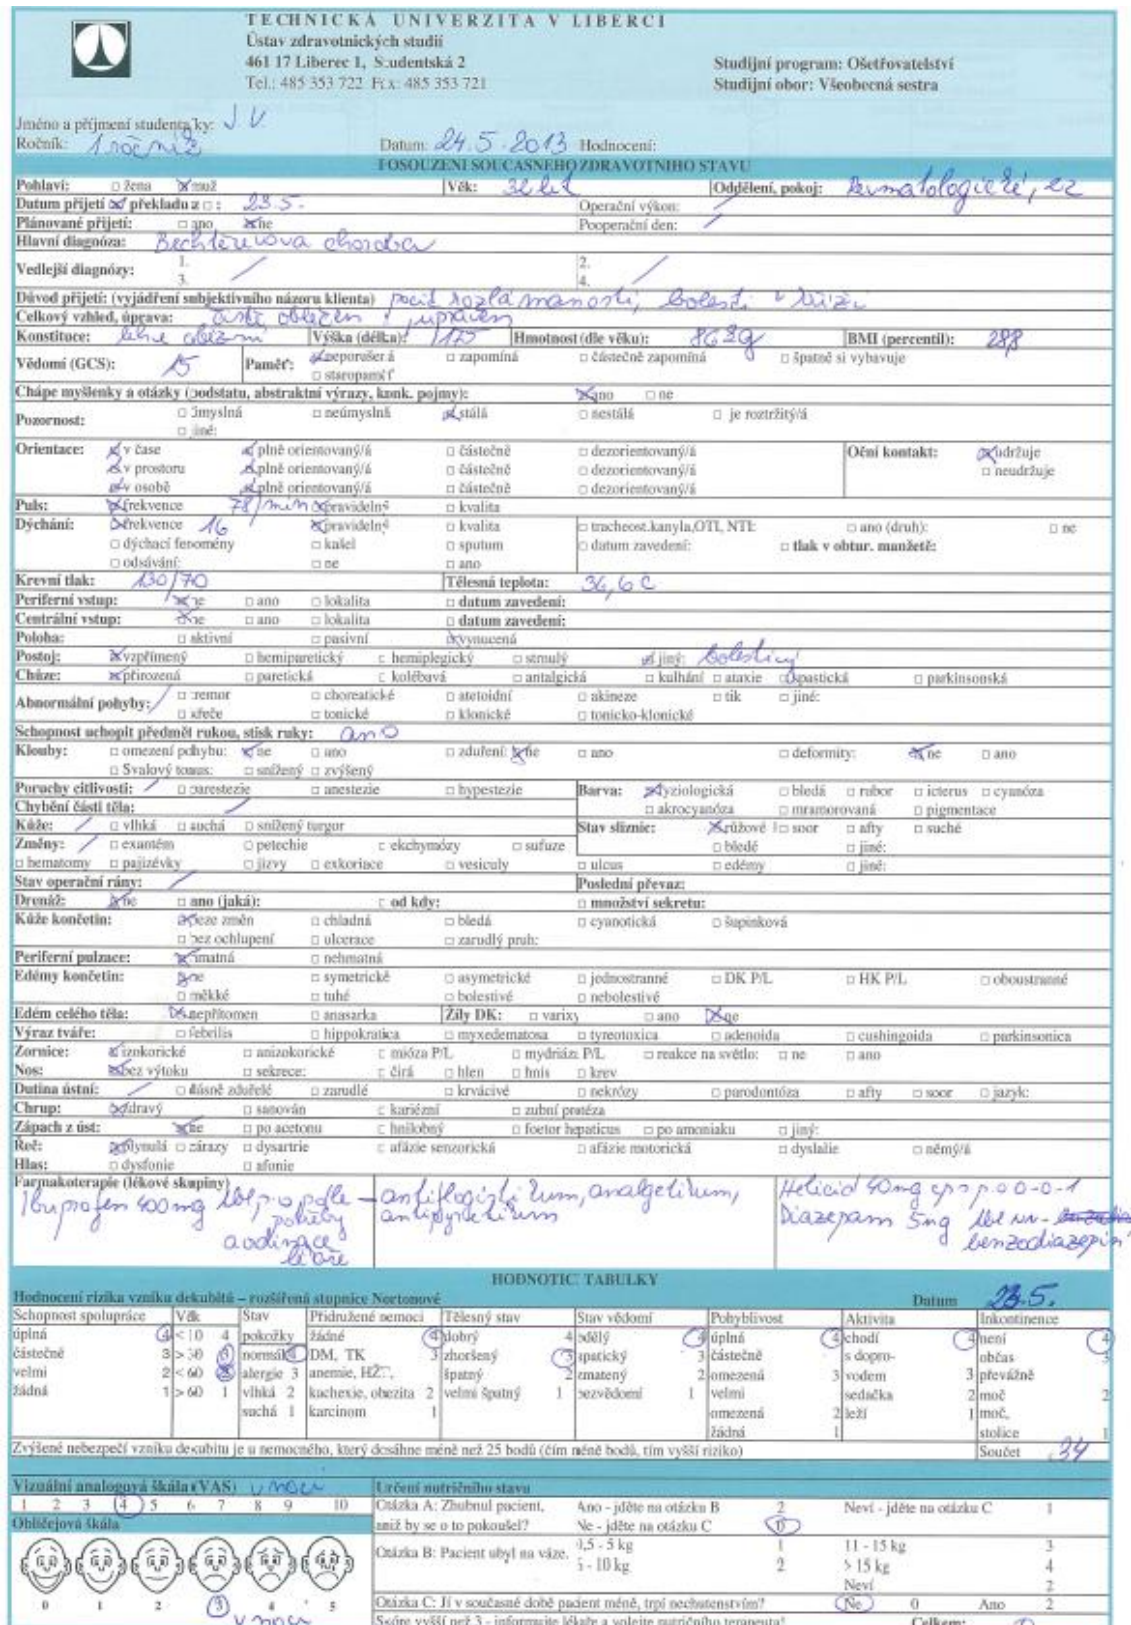 TECHNICKÁ UNIVERZITA V LIBERCI
Ústav zdravotnických studií
461 17 Liberec 1, Studentská 2
Tel.: 485 353 722 Fax: 485 353 721
Studijní program: Ošetřovatelství
Studijní obor: Všeobecná sestra
Jméno a příjmení studenta/ky: J V.
Ročník: 1 ročník Datum: 24.5.2013 Hodnocení:
POSOUZENÍ SOUČASNÉHO ZDRAVOTNÍHO STAVU
Pohlaví: □ žena ☒ muž Věk: 32 let Oddělení, pokoj: Dermatologické, 22
Datum přijetí ☒ překladu z □: 23.5. Operační výkon: /
Plánované přijetí: □ ano ☒ ne Pooperační den: /
Hlavní diagnóza: Bechtěrevova choroba
Vedlejší diagnózy: 1. 2.
3. / 4. /
Důvod přijetí: (vyjádření subjektivního názoru klienta) pocit rozlámanosti, bolesti v kříži
Celkový vzhled, úprava: čistě oblečen, upraven
Konstituce: lehce obézní Výška (délka): 175 Hmotnost (dle věku): 86 kg BMI (percentil): 28,8
Vědomí (GCS): 15 Paměť: ☒ neporušená □ zapomíná □ částečně zapomíná □ špatně si vybavuje
□ staropaměť
Chápe myšlenky a otázky (podstatu, abstraktní výrazy, konk. pojmy): ☒ ano □ ne
Pozornost: □ úmyslná □ neúmyslná ☒ stálá □ nestálá □ je roztržitý/á
□ jiné:
Orientace: ☒ v čase ☒ plně orientovaný/á □ částečně □ dezorientovaný/á Oční kontakt: ☒ udržuje
☒ v prostoru ☒ plně orientovaný/á □ částečně □ dezorientovaný/á □ neudržuje
☒ v osobě ☒ plně orientovaný/á □ částečně □ dezorientovaný/á
Puls: ☒ frekvence 78/min ☒ pravidelný □ kvalita
Dýchání: ☒ frekvence 16 ☒ pravidelný □ kvalita □ tracheost.kanyla,OTI, NTI: □ ano (druh): □ ne
□ dýchací fenomény □ kašel □ sputum □ datum zavedení: □ tlak v obtur. manžetě:
□ odsávání: □ ne □ ano
Krevní tlak: 130/70 Tělesná teplota: 36,6 C
Periferní vstup: ☒ ne □ ano □ lokalita □ datum zavedení:
Centrální vstup: ☒ ne □ ano □ lokalita □ datum zavedení:
Poloha: □ aktivní □ pasivní ☒ vynucená
Postoj: ☒ vzpřímený □ hemiparetický □ hemiplegický □ strnulý ☒ jiný: bolestivý
Chůze: ☒ přirozená □ paretická □ kolébavá □ antalgická □ kulhání □ ataxie □ spastická □ parkinsonská
Abnormální pohyby: / □ tremor □ choreatické □ atetoidní □ akineze □ tik □ jiné:
□ křeče □ tonické □ klonické □ tonicko-klonické
Schopnost uchopit předmět rukou, stisk ruky: ano
Klouby: □ omezení pohybu: ☒ ne □ ano □ zduření: ☒ ne □ ano □ deformity: ☒ ne □ ano
□ Svalový tonus: □ snížený □ zvýšený
Poruchy citlivosti: / □ parestezie □ anestezie □ hypestezie Barva: ☒ fyziologická □ bledá □ rubor □ icterus □ cyanóza
Chybění části těla: / □ akrocyanóza □ mramorovaná □ pigmentace
Kůže: / □ vlhká □ suchá □ snížený turgor Stav sliznic: ☒ růžové □ soor □ afty □ suché
Změny: / □ exantém □ petechie □ ekchymózy □ sufuze □ bledé □ jiné:
□ hematomy □ pajizévky □ jizvy □ exkoriace □ vesiculy □ ulcus □ edémy □ jiné:
Stav operační rány: / Poslední převaz:
Drenáž: ☒ ne □ ano (jaká): □ od kdy: □ množství sekretu:
Kůže končetin: ☒ beze změn □ chladná □ bledá □ cyanotická □ šupinková
□ bez ochlupení □ ulcerace □ zarudlý pruh:
Periferní pulzace: ☒ hmatná □ nehmatná
Edémy končetin: ☒ ne □ symetrické □ asymetrické □ jednostranné □ DK P/L □ HK P/L □ oboustranné
□ měkké □ tuhé □ bolestivé □ nebolestivé
Edém celého těla: ☒ nepřítomen □ anasarka Žíly DK: □ varixy □ ano ☒ ne
Výraz tváře: □ febrilis □ hippokratica □ myxedematosa □ tyreotoxica □ adenoida □ cushingoida □ parkinsonica
Zornice: ☒ izokorické □ anizokorické □ mióza P/L □ mydriáza P/L □ reakce na světlo: □ ne □ ano
Nos: ☒ bez výtoku □ sekrece: □ čirá □ hlen □ hnis □ krev
Dutina ústní: / □ dásně zduřelé □ zarudlé □ krvácivé □ nekrózy □ parodontóza □ afty □ soor □ jazyk:
Chrup: ☒ zdravý □ sanován □ kariézní □ zubní protéza
Zápach z úst: ☒ ne □ po acetonu □ hnilobný □ foetor hepaticus □ po amoniaku □ jiný:
Řeč: ☒ plynulá □ zárazy □ dysartrie □ afázie senzorická □ afázie motorická □ dyslalie □ němý/á
Hlas: □ dysfonie □ afonie
Farmakoterapie (lékové skupiny)
Ibuprofen 400mg tbl p.o podle potřeby a ordinace lékaře
– antiflogistikum, analgetikum, antipyretikum
Helicid 40mg cps p.o 0-0-1
Diazepam 5mg tbl - benzodiazepin
HODNOTÍCÍ TABULKY
Hodnocení rizika vzniku dekubitů – rozšířená stupnice Nortonové Datum 23.5.
Schopnost spolupráce Věk Stav Přidružené nemoci Tělesný stav Stav vědomí Pohyblivost Aktivita Inkontinence
úplná 4 <10 4 pokožky žádné 4 dobrý 4 bdělý 4 úplná 4 chodí 4 není 4
částečně 3 >30 3 normální 4 DM, TK 3 zhoršený 3 apatický 3 částečně s dopro- občas 3
velmi 2 <60 2 alergie 3 anemie, špatný 2 zmatený 2 omezená 3 vodem 3 převážně
žádná 1 >60 1 vlhká 2 kachexie, obezita 2 velmi špatný 1 bezvědomí 1 velmi sedačka 2 moč 2
suchá 1 karcinom 1 omezená 2 leží 1 moč,
žádná 1 stolice 1
Zvýšené nebezpečí vzniku dekubitu je u nemocného, který dosáhne méně než 25 bodů (čím méně bodů, tím vyšší riziko) Součet 34
Vizuální analogová škála (VAS) v noci Určení nutričního stavu
1 2 3 4 5 6 7 8 9 10 Otázka A: Zhubnul pacient, Ano - jděte na otázku B 2 Neví - jděte na otázku C 1
Obličejová škála aniž by se o to pokoušel? Ne - jděte na otázku C 0
Otázka B: Pacient ubyl na váze. 0,5 - 5 kg 1 11 - 15 kg 3
5 - 10 kg 2 > 15 kg 4
Neví 2
0 1 2 3 4 5 Otázka C: Jí v současné době pacient méně, trpí nechutenstvím? Ne 0 Ano 2
v noci Skóre vyšší než 3 - informujte lékaře a volejte nutričního terapeuta! Celkem: